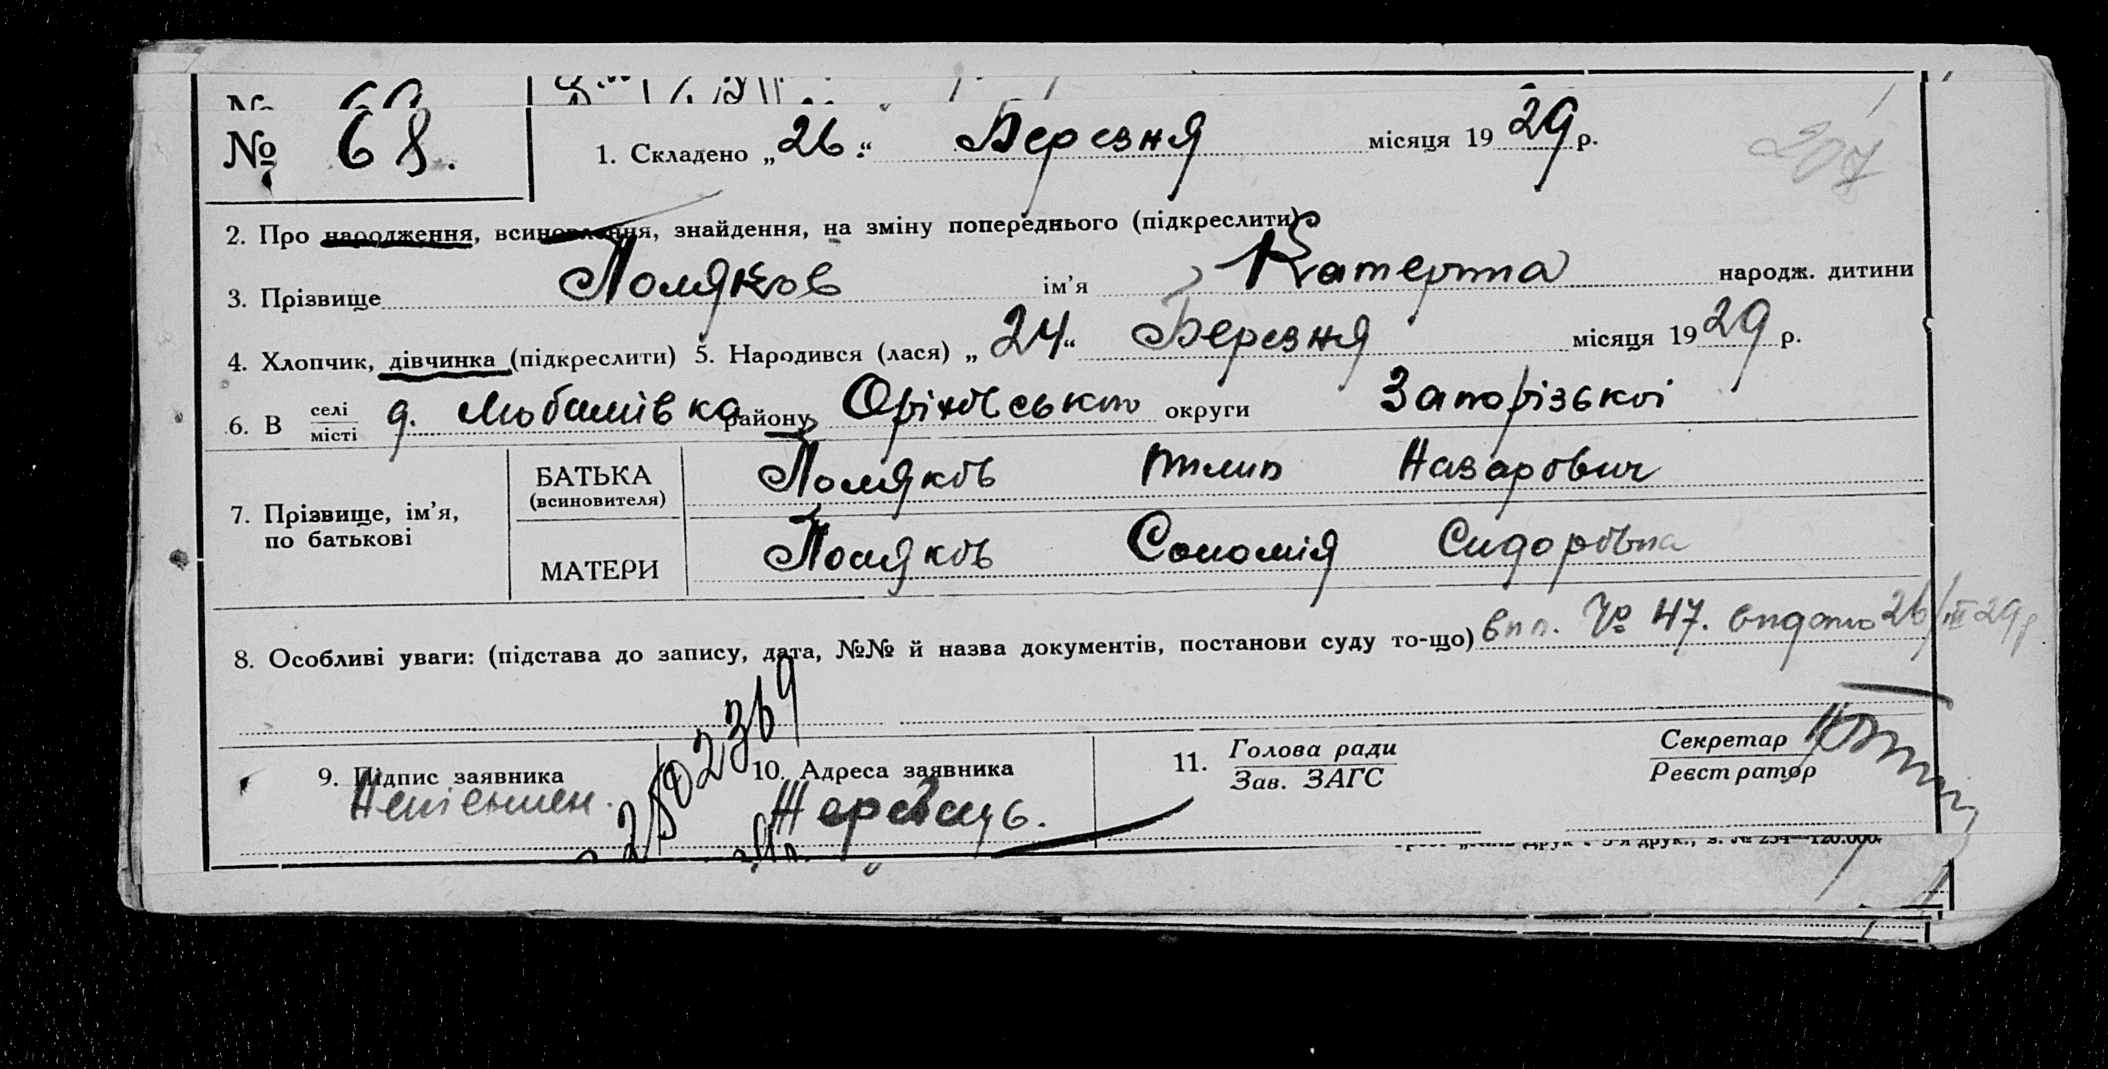 № 68.
1. Складено „26.“ Березня місяця 1929 р.
207
2. Про народження, всиновлення, знайдення, на зміну попереднього (підкреслити)
3. Прізвище Поляков ім’я Катерина народж. дитини
4. Хлопчик, дівчинка (підкреслити) 5. Народився (лася) „24“ Березня місяця 1929 р.
6. В селі місті д. Любимівка району Оріхівського округи Запорізької
7. Прізвище, ім’я, по батькові
БАТЬКА (всиновителя) Поляков Пилип Назарович
МАТЕРИ Поляков Соломія Сидоровна
8. Особливі уваги: (підстава до запису, дата, №№ й назва документів, постанови суду то-що) вип. № 47. видано 26/III 29 р
2502369
9. Підпис заявника
Неписьмен.
10. Адреса заявника
Жеребець.
11. Голова ради
Зав. ЗАГС
Секретар
Реєстратор